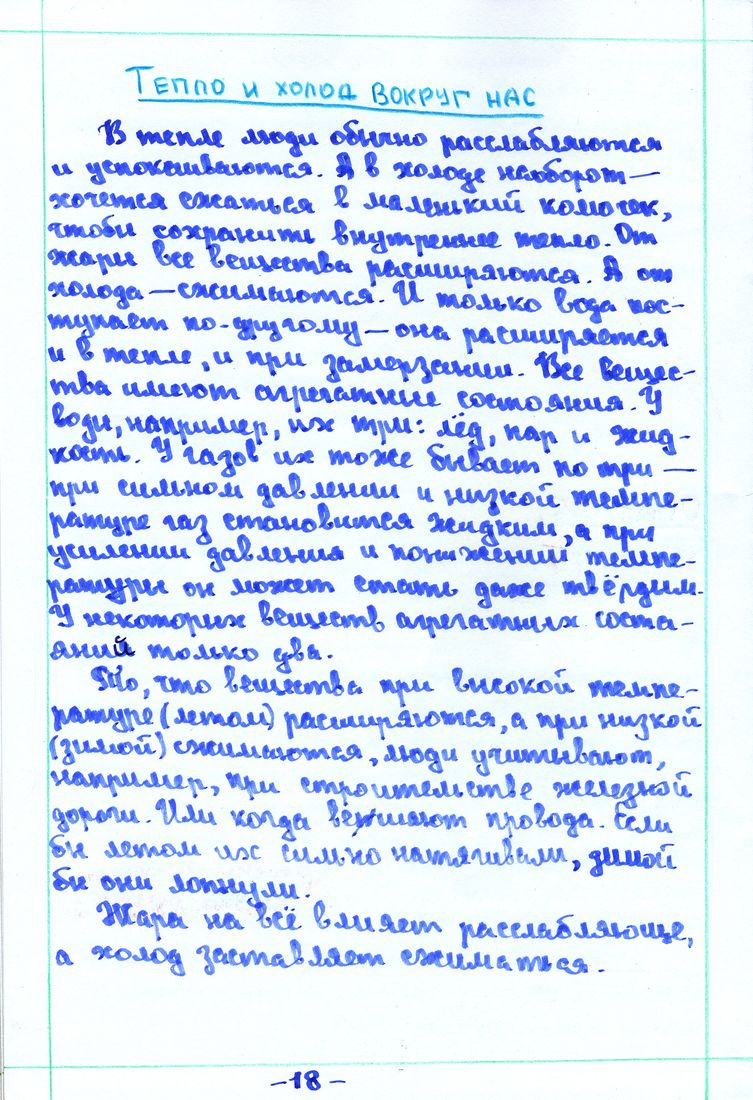 Тепло и холод вокруг нас
В тепле люди обычно расслабляются
и успокаиваются. А в холоде наоборот —
хочется сжаться в маленький комочек,
чтобы сохранить внутреннее тепло. От
жары все вещества расширяются. А от
холода — сжимаются. И только вода пос-
тупает по-другому — она расширяется
и в тепле, и при замерзании. Все вещес-
тва имеют агрегатные состояния. У
воды, например, их три: лёд, пар и жид-
кость. У газов их тоже бывает по три —
при сильном давлении и низкой темпе-
ратуре газ становится жидким, а при
усилении давления и понижении темпе-
ратуры он может стать даже твёрдым.
У некоторых веществ агрегатных соста-
яний только два.
То, что вещества при высокой темпе-
ратуре (летом) расширяются, а при низкой
(зимой) сжимаются, люди учитывают,
например, при строительстве железной
дороги. Или когда вешают провода. Если
бы летом их сильно натягивали, зимой
бы они лопнули.
Жара на всё влияет расслабляюще,
а холод заставляет сжиматься.
-18-